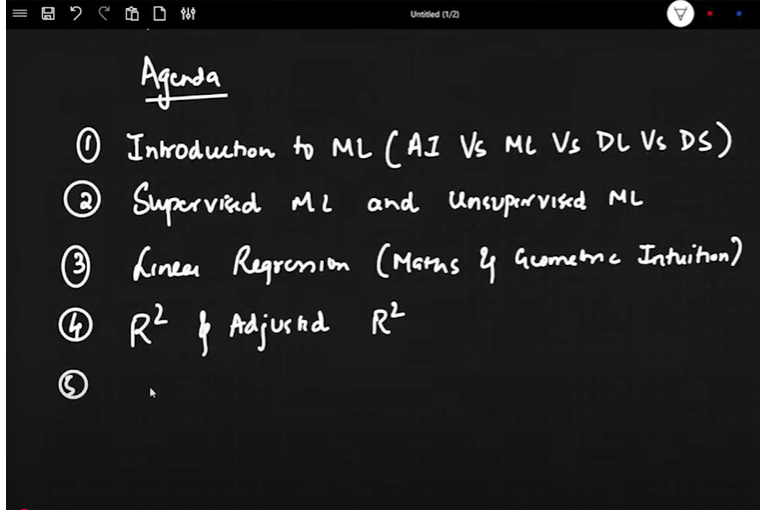 Untitled (1/2)
Agenda
① Introduction to ML (AI Vs ML Vs DL Vs DS)
② Supervised ML and Unsupervised ML
③ Linear Regression (Maths & Geometric Intuition)
④ R² & Adjusted R²
⑤